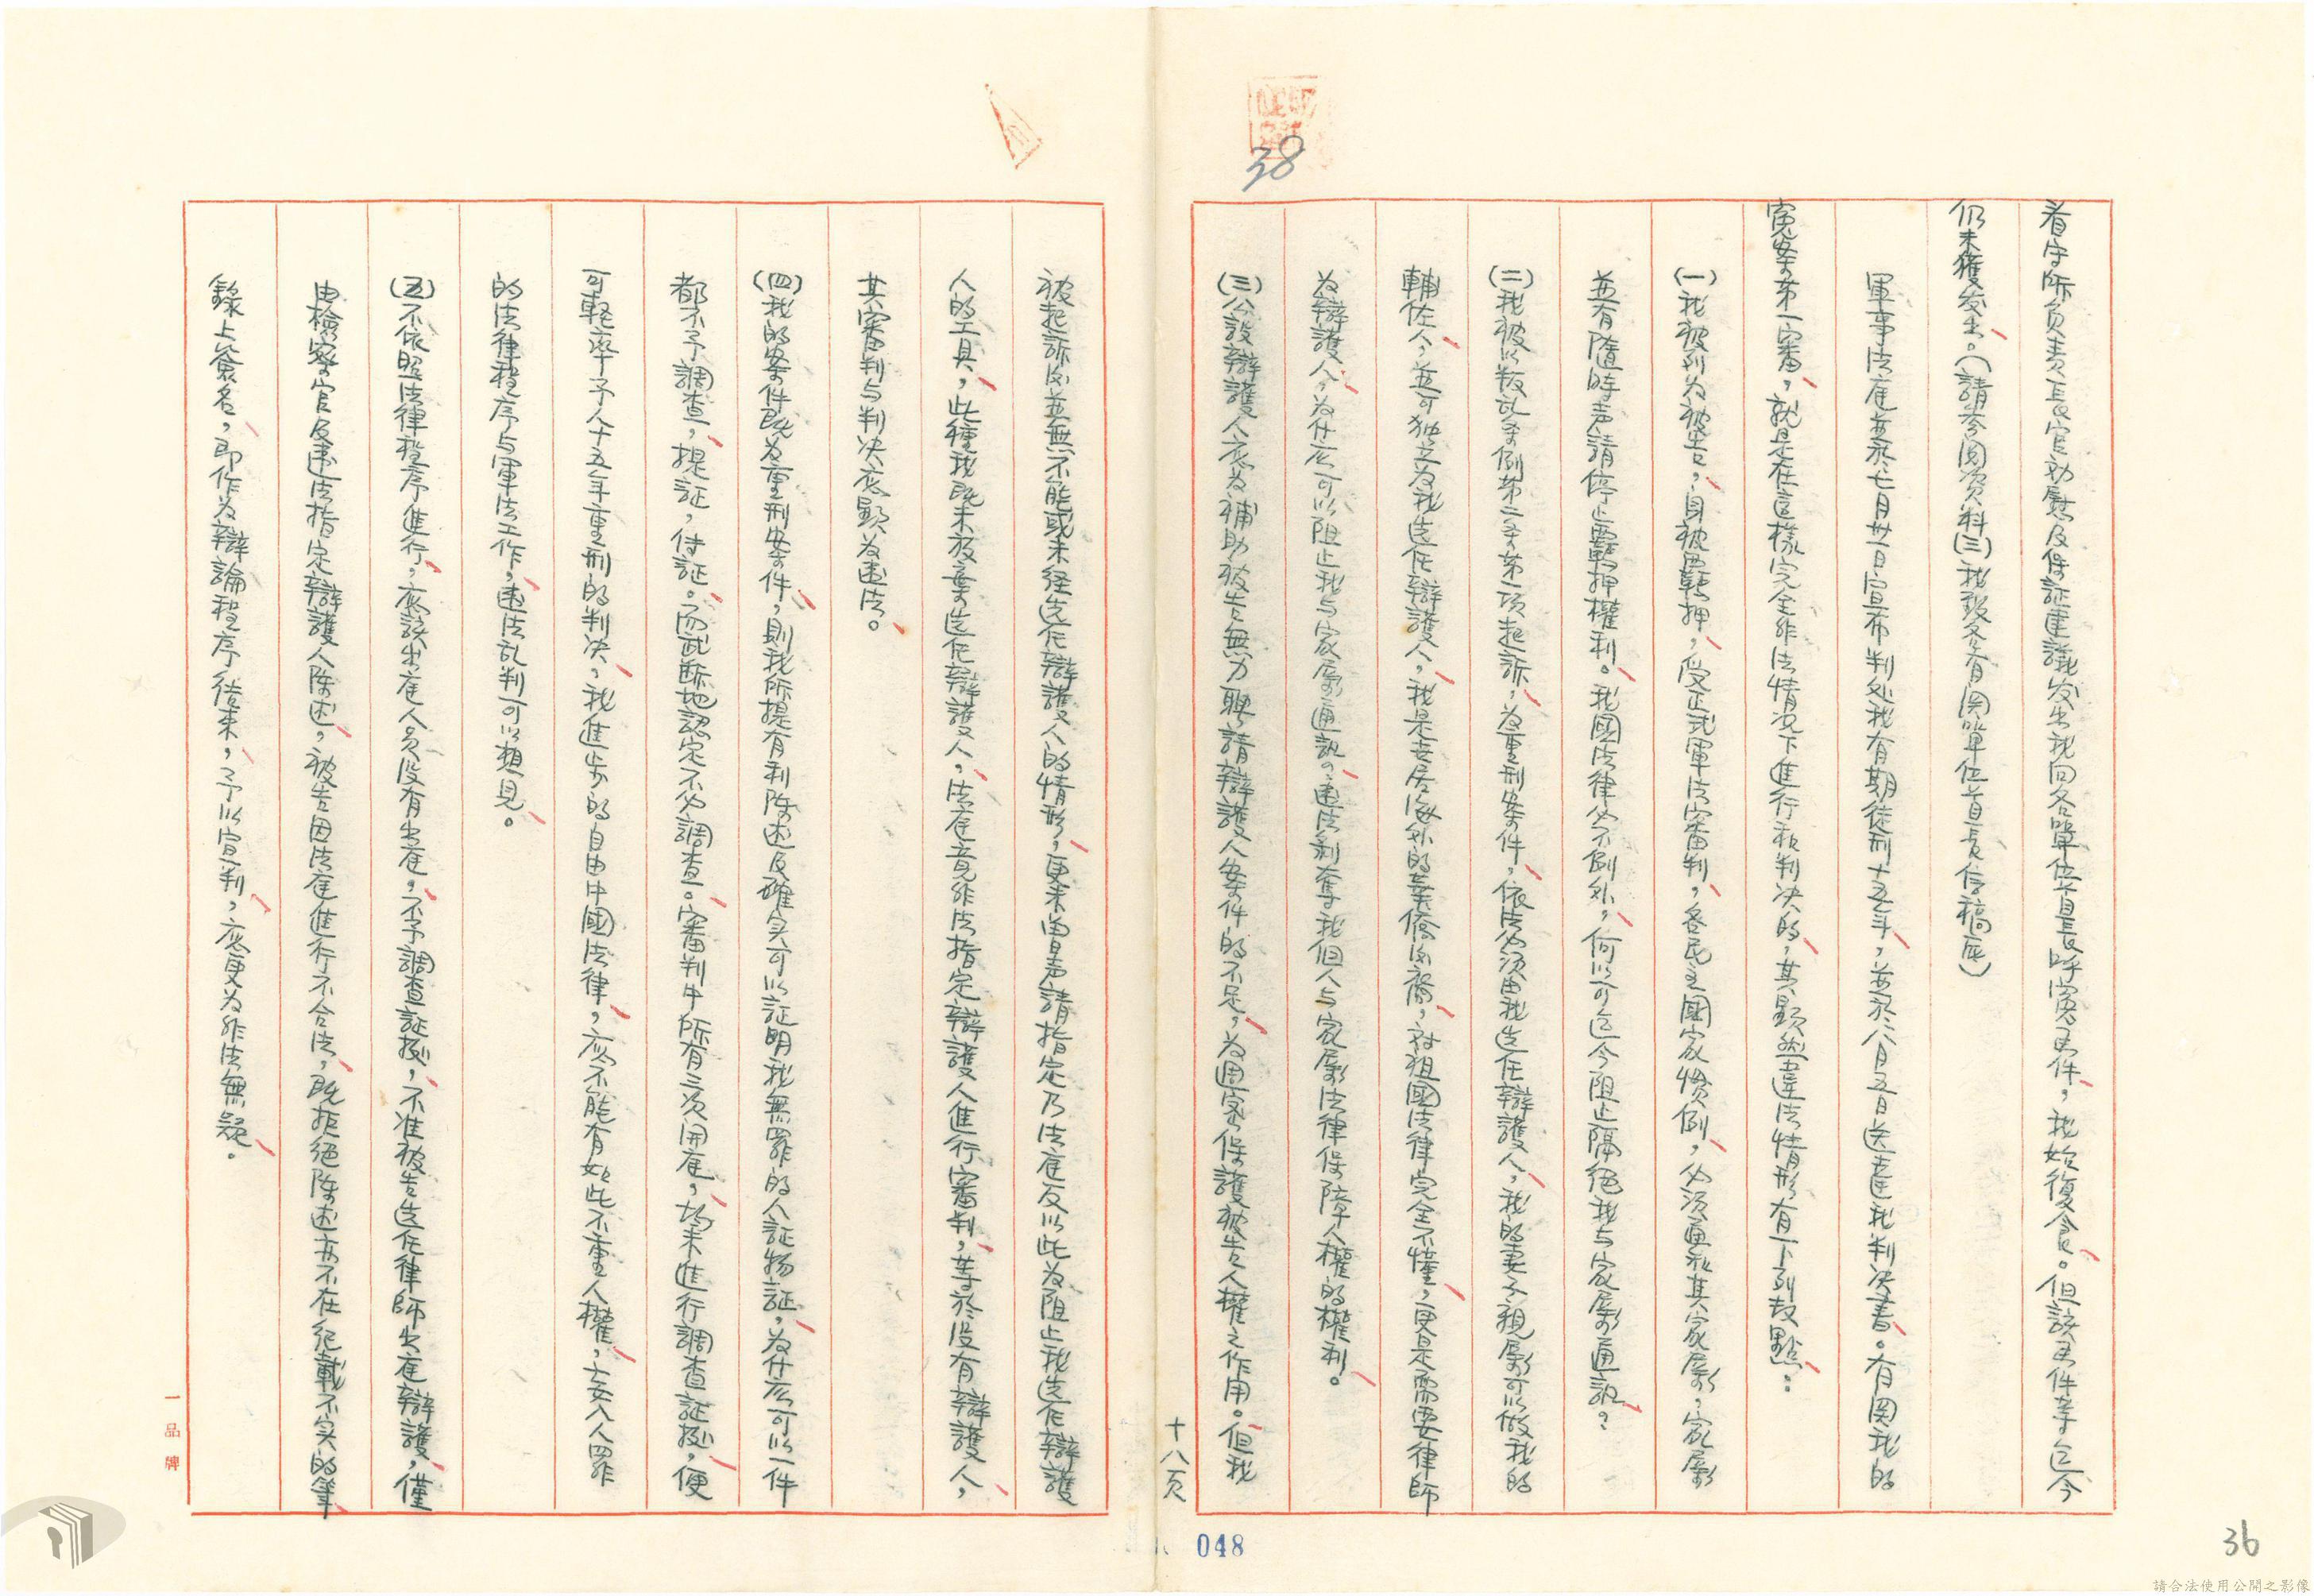 38
看守所負責長官勸慰及保証建議发出我向各單位首長呼寃函件，我始復食。但該函件等迄今
仍未獲发出。（請參閱資料(三)我致各有関單位首長信稿底）
軍事法庭並於七月卅一日宣布判処我有期徒刑十五年，並於八月五日送達我判決書。有関我的
寃案第一審，就是在這樣完全非法情况下進行和判决的，其顕然違法情形有下列敖點：
(一)我被列为被告，身被覊押，受正式軍法審判，各民主國家慣例，必須通知其家屬，家屬
並有隨時声請停止覊押權利。我國法律必不例外，何以可迄今阻止隔绝我与家屬通訊？
(二)我被以叛乱条例第二条第一项起訴，为重刑案件，依法必須由我选任辯護人，我的妻子親屬可以做我的
輔佐人，並可独立为我选任辯護人，我是世居海外的華僑後裔，对祖國法律完全不懂，更是需要律師
为辯護人，为什庅可以阻止我与家屬通訊。違法剝奪我個人与家屬法律保障人權的權利。
(三)公設辯護人應为補助被告無力聘請辯護人案件的不足，为週密保護被告人權之作用。但我
十八页
被起訴後並無不能或未经选任辯護人的情形，更未曾声請指定乃法庭反以此为阻止我选任辯護
人的工具，此種我既未放棄选任辯護人，法庭竟非法指定辯護人進行審判，等於没有辯護人，
其審判与判决應顕为違法。
(四)我的案件既为重刑案件，則我所提有利陈述及確实可以証明我無罪的人証物証，为什庅可以一件
都不予調查，提証，传証。而武断地認定不必調查。審判中所有三次开庭，均未進行調查証據，便
可輕率予人十五年重刑的判决，我進步的自由中國法律，應不能有如此不重人權，妄入人罪
的法律程序与軍法工作，違法乱判可以想見。
(五)不依照法律程序進行，應該出庭人员没有出庭，不予調查証據，不准被告选任律師出庭辯護，僅
由檢察官及違法指定辯護人陈述，被告因法庭進行不合法，既拒绝陈述亦不在纪載不实的筆
錄上簽名，即作为辯論程序结束，予以宣判，應更为非法無疑。
一品牌
048
36
請合法使用公開之影像